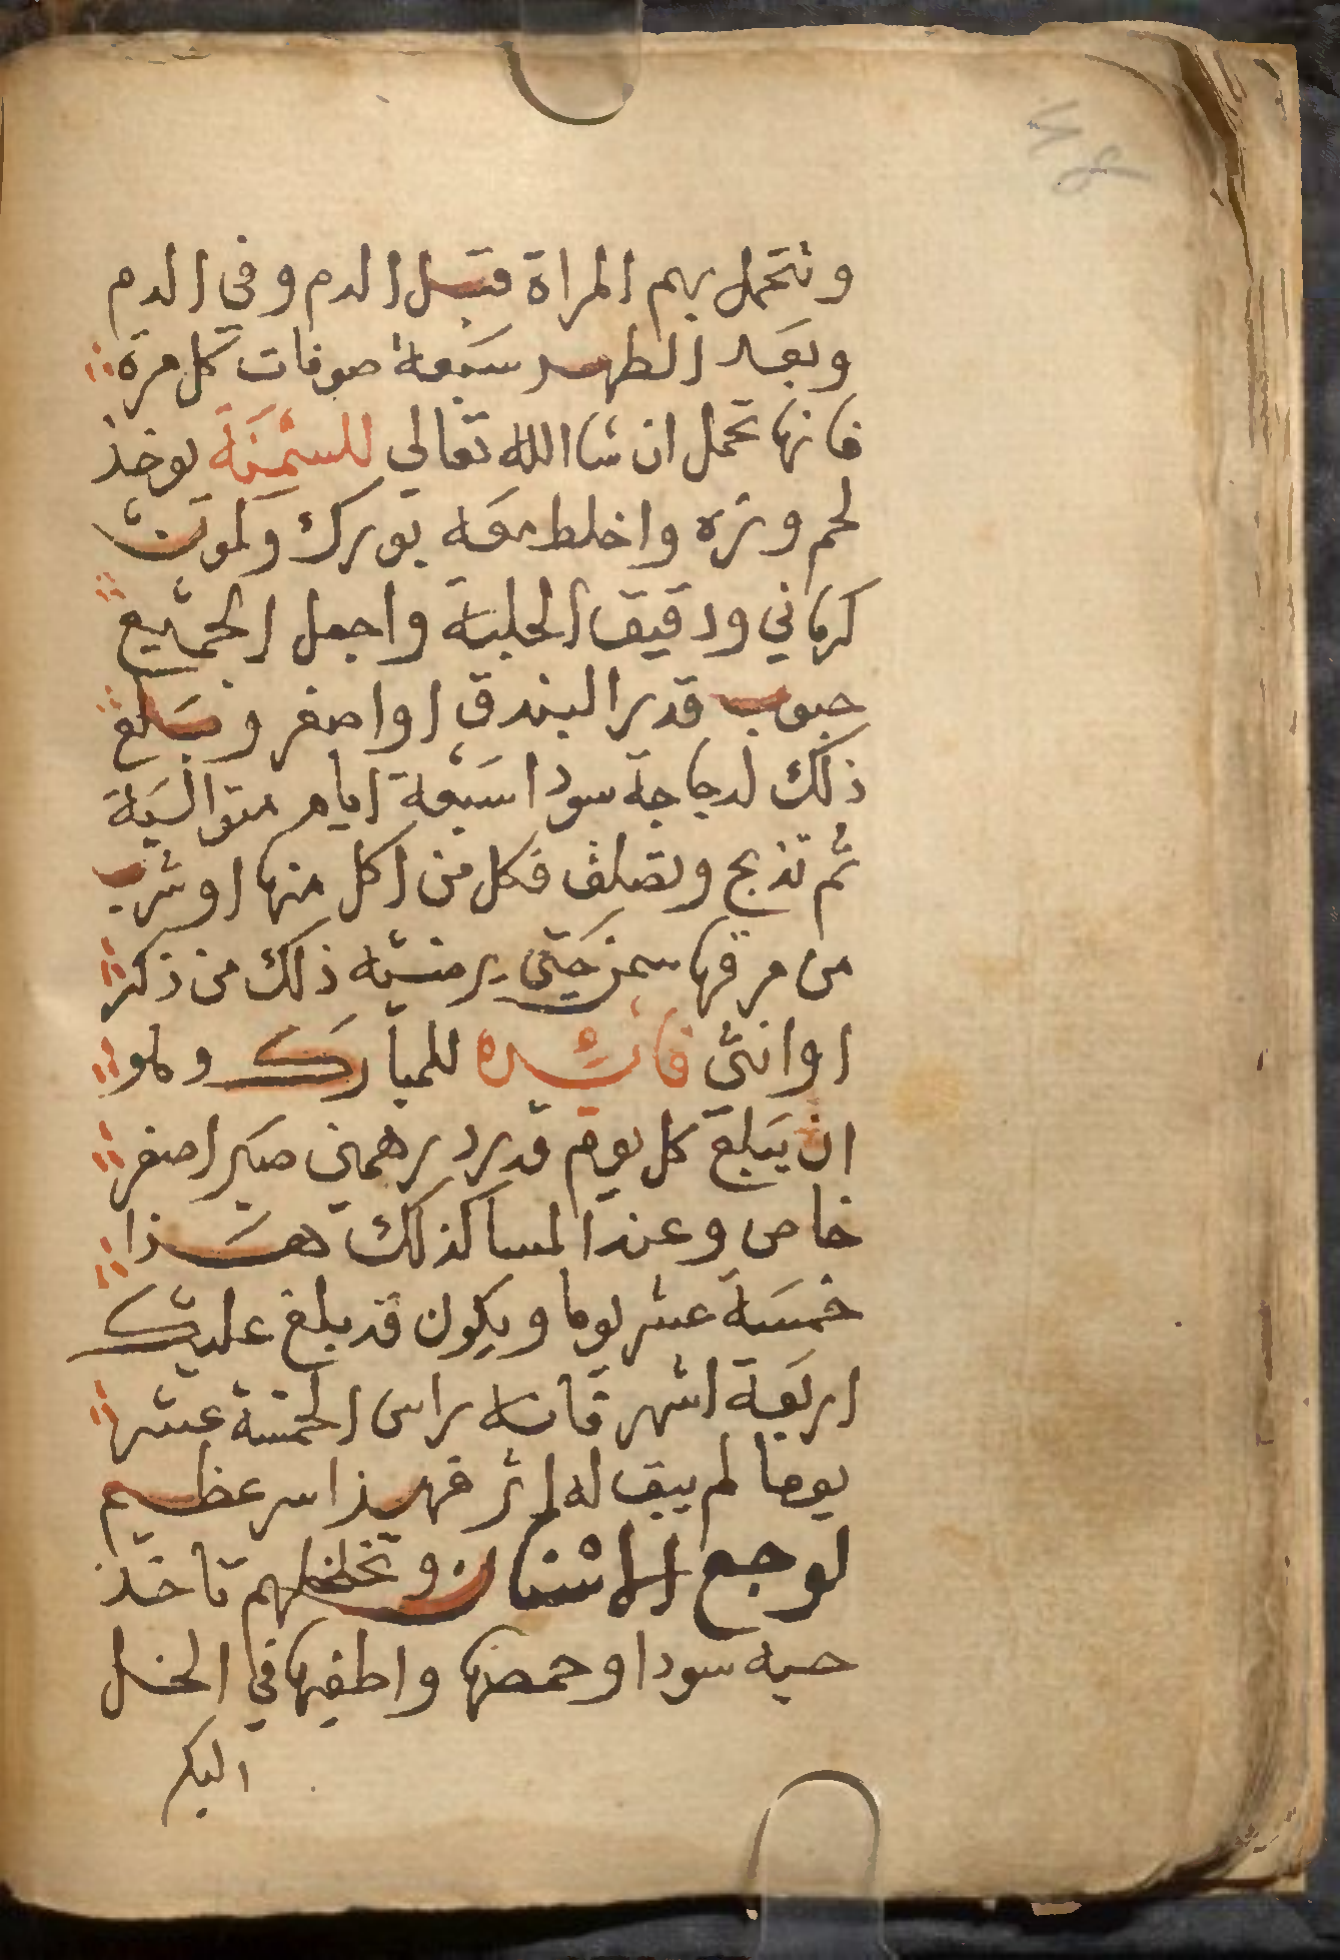 وتتحمل بهم المراة قبل الدم وفي الدم
وبعد الطهر سبعة صوفات كل مرة
فانها تحمل ان شا الله تعالي للسمنة يوخذ
لحم وزه واخلط معه بورك وكمون
كرماني ودقيق الحلبه واجعل الجميع
حبوب قدر البندق او اصغر وتبلع
ذلك لدجاجة سودا سبعة ايام متوالية
ثم تذبح وتصلق فكل من اكل منها او شرب
من مرقها سمن حتى يرضيه ذلك من ذكر
او انثى فائده للمبارك وهو
ان يبلع كل يوم قدر درهمين صبر اصفر
خاص وعند المسا كذلك هذا
خمسة عشر يوما ويكون قد بلغ عليك
اربعة اشهر فانه براس الخمسة عشر
يوما لم يبق له اثر فهذا سر عظيم
لوجع الاسنان وتخلخلهم تاخذ
حبه سودا وحمصها واطفيها في الخل
البكر